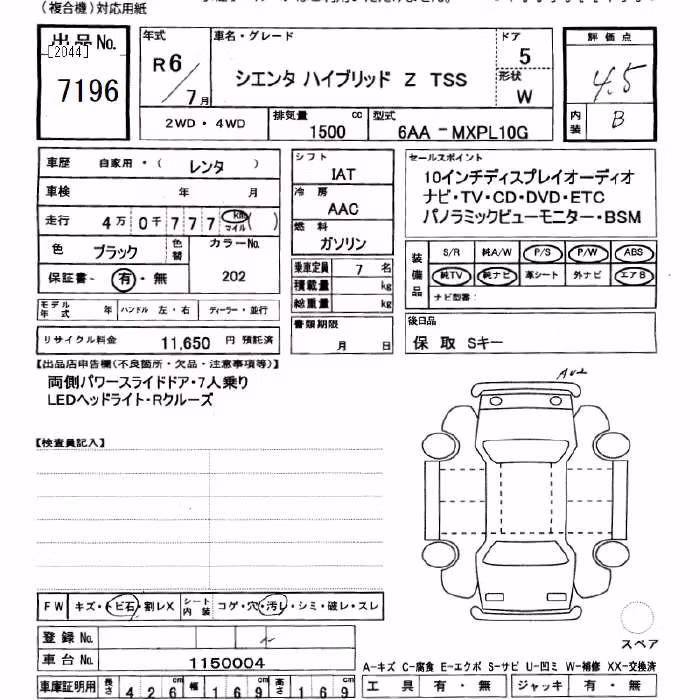 (複合機)対応用紙
出品No.
[2044]
7196
年式
R6/7月
車名・グレード
シエンタ ハイブリッド Z TSS
ドア
5
形状
W
評価点
4.5
内装
B
2WD・4WD
排気量
1500 cc
型式
6AA-MXPL10G
車歴 自家用・( レンタ )
車検 年 月
走行 4万 0千 7 7 7 km マイル ( )
色 ブラック 色替
カラーNo.
202
保証書- 有・無
モデル年式 年 ハンドル 左・右 ディーラー・並行
リサイクル料金 11,650 円 預託済
シフト
IAT
冷房
AAC
燃料
ガソリン
乗車定員 7 名
積載量 kg
総重量 kg
書類期限
月 日
セールスポイント
10インチディスプレイオーディオ
ナビ・TV・CD・DVD・ETC
パノラミックビューモニター・BSM
装備品
S/R 純A/W P/S P/W ABS
純TV 純ナビ 革シート 外ナビ エアB
ナビ型番:
後日品
保 取 Sキー
【出品店申告欄(不良箇所・欠品・注意事項等)】
両側パワースライドドア・7人乗り
LEDヘッドライト・Rクルーズ
【検査員記入】
FW キズ・トビ石・割レX シート内装 コゲ・穴・汚レ・シミ・破レ・スレ
登録No.
車台No. 1150004
車庫証明用 長さ 426cm 幅 169cm 高さ 169cm
スペア
A-キズ C-腐食 E-エクボ S-サビ U-凹ミ W-補修 XX-交換済
工具 有・無 ジャッキ 有・無